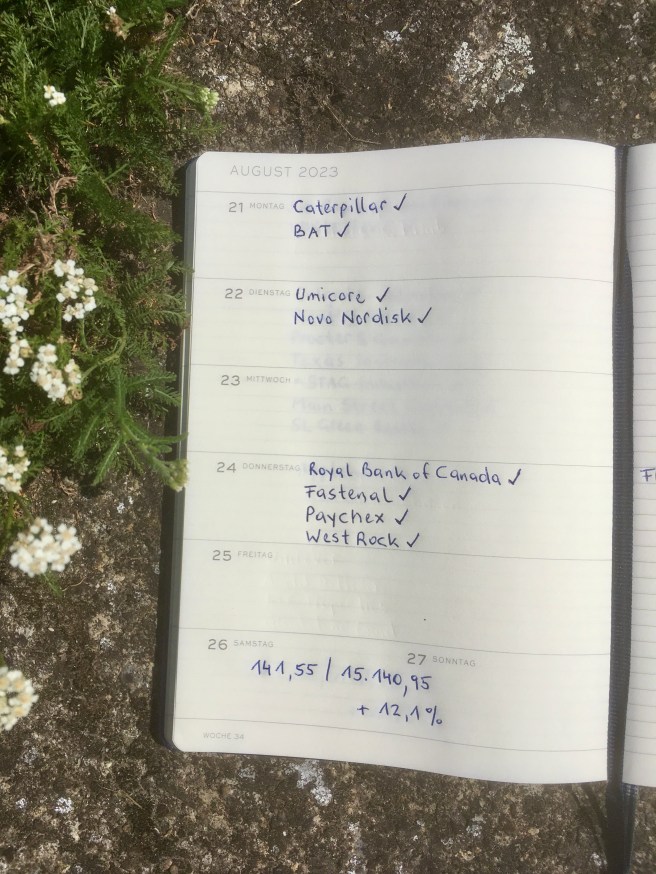 AUGUST 2023
21 MONTAG Caterpillar ✓
BAT ✓
22 DIENSTAG Umicore ✓
Novo Nordisk ✓
23 MITTWOCH
24 DONNERSTAG Royal Bank of Canada ✓
Fastenal ✓
Paychex ✓
West Rock ✓
25 FREITAG
26 SAMSTAG
27 SONNTAG
141,55 | 15.140,95
+ 12,1%
WOCHE 34